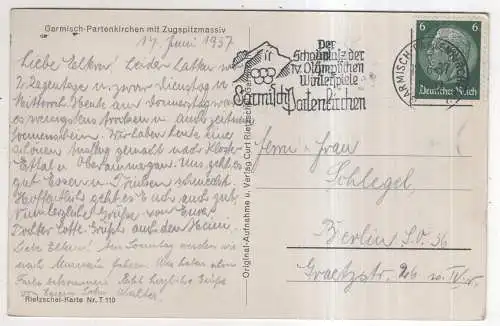 Garmisch-Partenkirchen mit Zugspitzmassiv
17. Juni 1937
Liebe Eltern! Leider hatten wir
2 Regentage u. zwar Dienstag u.
Mittwoch. Heute am Donnerstag war
es wenigstens trocken u. auch zeitw.
Sonnenschein. Wir haben heute eine
schönen Ausflug gemacht nach Kloster
Ettal u. Oberammergau. Uns geht es
gut Essen u. Trinken schmeckt.
Hoffentlich geht es Euch auch gut.
Grüße von Eurer
Tochter
Liebe Eltern! Am Sonntag werden wir
nach Murnau fahren. Wir haben
Recht herzliche Grüße
von Eurem Sohn Walter.
Rietzschel-Karte Nr. T 110
Original-Aufnahme u. Verlag Curt Rietzschel
Der
Schauplatz der
IV. Olympischen
Winterspiele
Garmisch-Partenkirchen
6 6
Deutsches Reich
GARMISCH-PARTENKIRCHEN
Herrn, Frau
Schlegel
Berlin S.O. 36
Graetzstr.